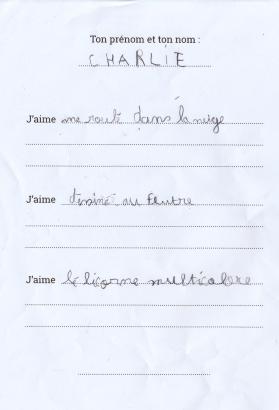 Ton prénom et ton nom :
CHARLIE
J'aime me roulé dans la neige
J'aime desiné au feutre
J'aime le licorne multicolore